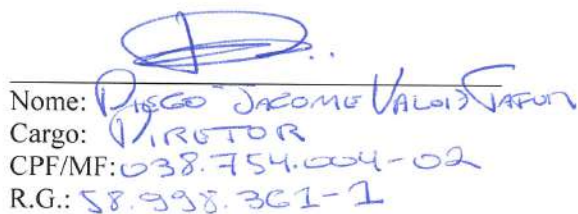 Nome: DIEGO JACOME VALOIS TAFUR
Cargo: DIRETOR
CPF/MF: 038.754.004-02
R.G.: 58.998.361-1